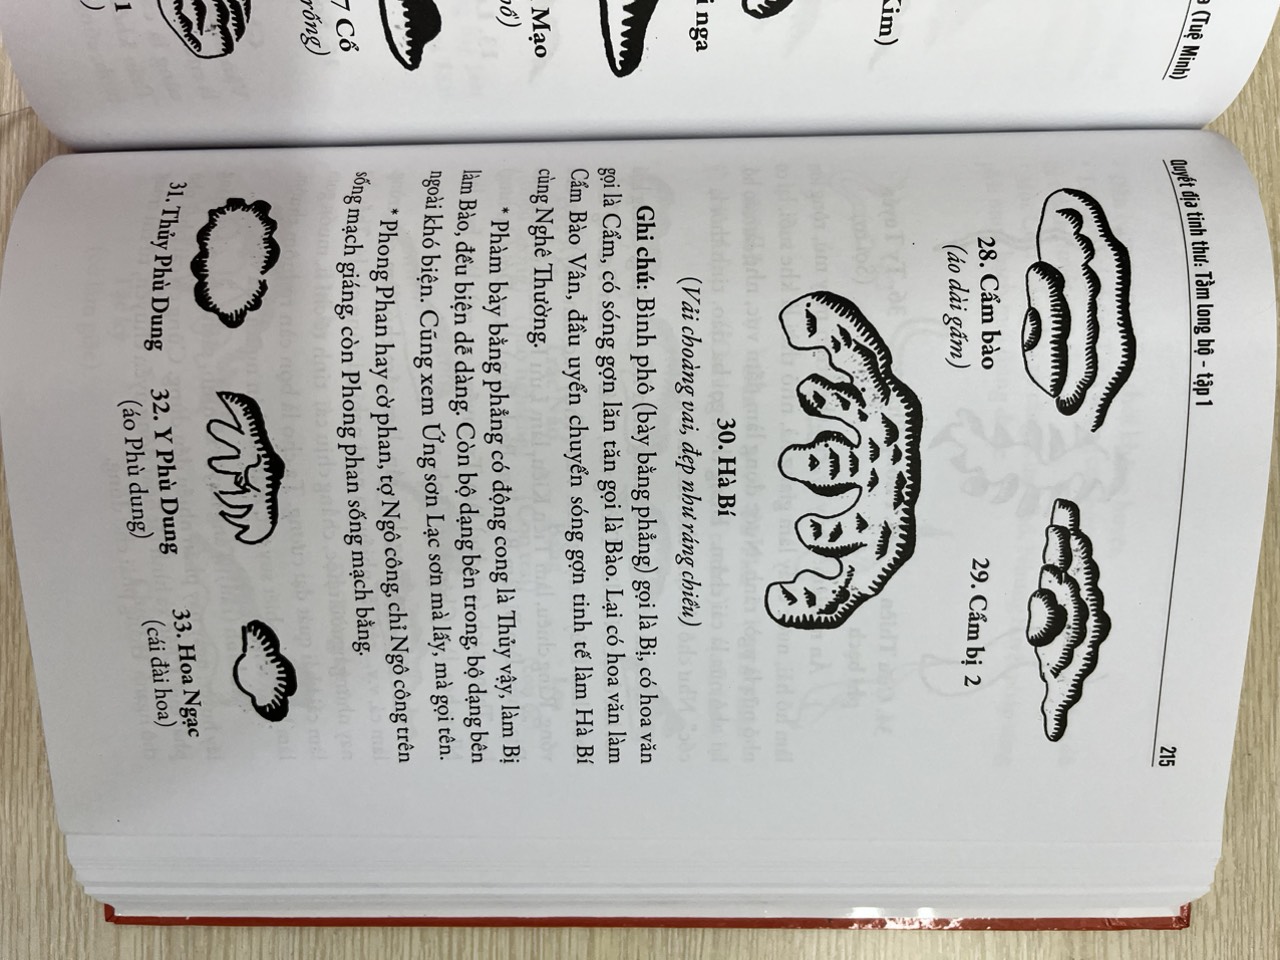 a (Tuệ Minh)
Kim)
i nga
Mạo
7 Cổ
rống)
1
Quyết địa tinh thư: Tầm long bộ - tập 1
215
28. Cẩm bào
(áo dài gấm)
29. Cẩm bị 2
30. Hà Bí
(Vải choàng vai, đẹp như ráng chiều)
Ghi chú: Bình phô (bày bằng phẳng) gọi là Bị, có hoa văn
gọi là Cẩm, có sóng gợn lăn tăn gọi là Bào. Lại có hoa văn làm
Cẩm Bào Vân, đầu uyển chuyển sóng gợn tinh tế làm Hà Bí
cùng Nghê Thường.
* Phàm bày bằng phẳng có động cong là Thủy vậy, làm Bị
làm Bào, đều biện dễ dàng. Còn bộ dạng bên trong, bộ dạng bên
ngoài khó biện. Cũng xem Ứng sơn Lạc sơn mà lấy, mà gọi tên.
* Phong Phan hay cờ phan, tợ Ngô công, chỉ Ngô công trên
sống mạch giáng, còn Phong phan sống mạch bằng.
31. Thủy Phù Dung
32. Y Phù Dung
(áo Phù dung)
33. Hoa Ngạc
(cái đài hoa)